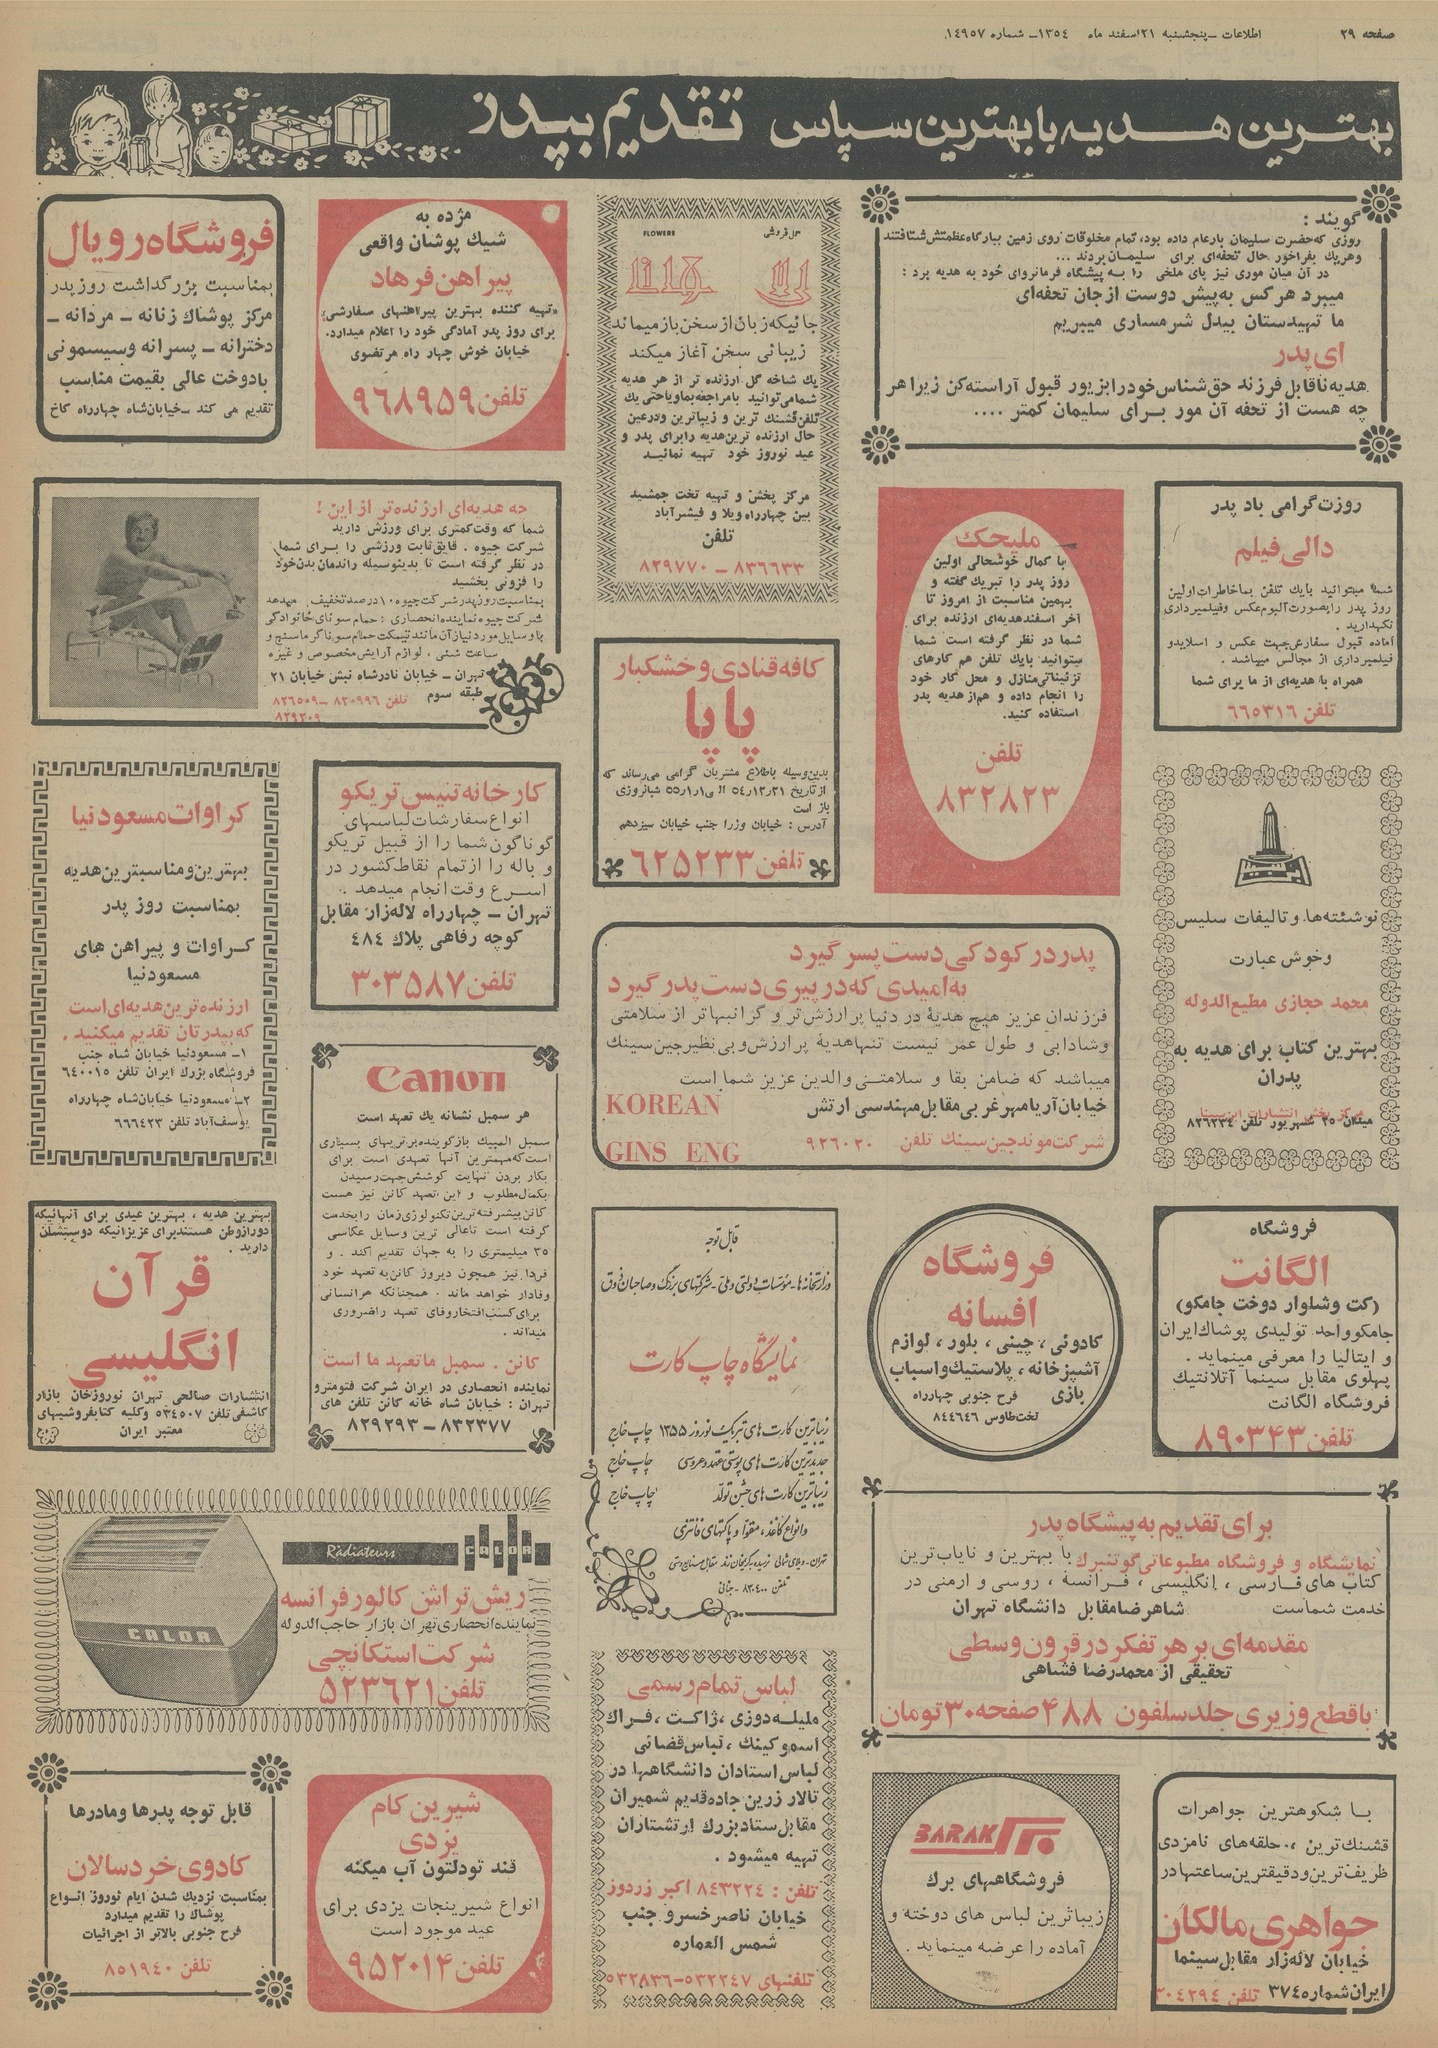 صفحه ۲۹
اطلاعات ـ پنجشنبه ۲۱ اسفند ماه ۱۳۵۴ـ شماره ۱۴۹۵۷
بهترین هدیه با بهترین سپاس تقدیم بپدر
گویند :
روزی که حضرت سلیمان بار عام داده بود، تمام مخلوقات روی زمین ببارگاه عظمتش شتافتند
وهریك بفراخور حال تحفه‌ای برای سلیمان بردند ...
در آن میان موری نیز پای ملخی را به پیشگاه فرمانروای خود به هدیه برد :
میبرد هرکس به پیش دوست از جان تحفه‌ای
ما تهیدستان بیدل شرمساری میبریم
ای پدر
هدیه ناقابل فرزند حق شناس خود را بزیور قبول آراسته کن زیرا هر
چه هست از تحفه آن مور برای سلیمان کمتر ....
گل فروشی
FLOWERS
جائیکه زبان از سخن باز میماند
زیبائی سخن آغاز میکند
یك شاخه گل ارزنده تر از هر هدیه
شما می‌توانید با مراجعه بما و یا حتی یك
تلفن قشنك ترین و زیباترین و درعین
حال ارزنده ترین هدیه را برای پدر و
عید نوروز خود تهیه نمائید
مرکز پخش و تهیه تخت جمشید
بین چهارراه ویلا و فیشرآباد
تلفن
۸۳۶۶۳۳ ـ ۸۲۹۷۷۰
مژده به
شیك پوشان واقعی
پیراهن فرهاد
«تهیه کننده بهترین پیراهنهای سفارشی»
برای روز پدر آمادگی خود را اعلام میدارد.
خیابان خوش چهار راه مرتضوی
تلفن ۹۶۸۹۵۹
فروشگاه رویال
بمناسبت بزرگداشت روز پدر
مرکز پوشاك زنانه ـ مردانه ـ
دخترانه ـ پسرانه وسیسمونی
بادوخت عالی بقیمت مناسب
تقدیم می کند ـ خیابان شاه چهارراه کاخ
روزت گرامی باد پدر
دالی فیلم
شما میتوانید بایك تلفن بما خاطرات اولین
روز پدر را بصورت آلبوم عکس و فیلمبرداری
نگهدارید .
آماده قبول سفارش جهت عکس و اسلاید و
فیلمبرداری از مجالس میباشد .
همراه با هدیه‌ای از ما برای شما
تلفن ۶۶۵۳۱۶
ملیجك
با کمال خوشحالی اولین
روز پدر را تبریك گفته و
بهمین مناسبت از امروز تا
آخر اسفند هدیه‌ای ارزنده برای
شما در نظر گرفته است شما
میتوانید بایك تلفن هم کارهای
تزئیناتی منازل و محل کار خود
را انجام داده و هم از هدیه پدر
استفاده کنید.
تلفن
۸۳۲۸۲۳
چه هدیه‌ای ارزنده‌تر از این !
شما که وقت کمتری برای ورزش دارید
شرکت جیوه . قایق ثابت ورزشی را برای شما
در نظر گرفته است تا بدینوسیله راندمان بدن خود
را فزونی بخشید
بمناسبت روز پدر شرکت جیوه ۱۰ درصد تخفیف میدهد
شرکت جیوه نماینده انحصاری : حمام سونای خانوادگی
با وسایل مورد نیاز آن مانند نیمکت حمام سونا گرماسنج و
ساعت شنی ، لوازم آرایش مخصوص و غیره
تهران ـ خیابان نادرشاه نبش خیابان ۲۱
طبقه سوم
تلفن ۸۳۰۹۹۶ ـ ۸۲۶۵۰۹
۸۲۹۲۰۹
کافه قنادی وخشکبار
پاپا
بدینوسیله باطلاع مشتریان گرامی می‌رساند که
از تاریخ ۵۴/۱۲/۲۱ الی ۵۵/۱/۱ شبانروزی
باز است
آدرس : خیابان وزرا جنب خیابان سیزدهم
تلفن ۶۲۵۲۳۳
نوشته‌ها و تالیفات سلیس
وخوش عبارت
محمد حجازی مطیع الدوله
بهترین کتاب برای هدیه به
پدران
مرکز پخش انتشارات ابن سینا
میدان ۲۵ شهریور تلفن ۸۲۶۲۳۴
کارخانه تنیس تریکو
انواع سفارشات لباسهای
گوناگون شما را از قبیل تریکو
و باله را از تمام نقاط کشور در
اسرع وقت انجام میدهد .
تهران ـ چهارراه لاله‌زار مقابل
کوچه رفاهی پلاك ۴۸۴
تلفن ۳۰۳۵۸۷
کراوات مسعود دنیا
بهترین و مناسبترین هدیه
بمناسبت روز پدر
کراوات و پیراهن های
مسعود دنیا
ارزنده ترین هدیه‌ای است
که بپدرتان تقدیم میکنید .
۱ـ مسعود دنیا خیابان شاه جنب
فروشگاه بزرك ایران تلفن ۶۴۰۰۱۵
۲ـ مسعود دنیا خیابان شاه چهارراه
یوسف آباد تلفن ۶۶۶۴۲۳
پدر در کودکی دست پسر گیرد
به امیدی که در پیری دست پدر گیرد
فرزندان عزیز هیچ هدیهٔ در دنیا پر ارزش تر و گرانبهاتر از سلامتی
و شادابی و طول عمر نیست تنها هدیهٔ پر ارزش و بی نظیر جین سینك
میباشد که ضامن بقا و سلامتی والدین عزیز شما است
خیابان آریامهر غربی مقابل مهندسی ارتش
شرکت موند جین سینك تلفن ۹۲۶۰۲۰
KOREAN
GINS ENG
Canon
هر سمبل نشانه یك تعهد است
سمبل المپیك بازگوینده برتریهای بسیاری
است که مهمترین آنها تعهدی است برای
بکار بردن نهایت کوشش جهت رسیدن
بکمال مطلوب و این تعهد کانن نیز هست
کانن پیشرفته ترین تکنولوژی زمان را بخدمت
گرفته است تا عالی ترین وسایل عکاسی
۳۵ میلیمتری را به جهان تقدیم کند . و
فردا نیز همچون دیروز کانن به تعهد خود
وفادار خواهد ماند . همچنانکه هر انسانی
برای کسب افتخار وفای تعهد را ضروری
میداند .
کانن . سمبل ما تعهد ما است
نماینده انحصاری در ایران شرکت فتومترو
تهران : خیابان شاه خانه کانن تلفن های
۸۳۲۳۷۷ ـ ۸۲۹۲۹۳
بهترین هدیه ، بهترین عیدی برای آنهائیکه
دور از وطن هستند برای عزیزانیکه دوستشان
دارید .
قرآن
انگلیسی
انتشارات صالحی تهران نوروزخان بازار
کاشفی تلفن ۵۳۴۵۰۷ وکلیه کتابفروشیهای
معتبر ایران
فروشگاه
الگانت
(کت و شلوار دوخت جامکو)
جامکو واحد تولیدی پوشاك ایران
و ایتالیا را معرفی مینماید .
پهلوی مقابل سینما آتلانتیك
فروشگاه الگانت
تلفن ۸۹۰۳۴۳
فروشگاه
افسانه
کادوئی ، چینی ، بلور ، لوازم
آشپزخانه ، پلاستیك و اسباب
بازی
فرح جنوبی چهارراه
تخت طاوس ۸۴۴۶۴۶
قابل توجه
وزارتخانه‌ها ـ موسسات دولتی و ملی ـ شرکتهای بزرگ و صاحبان ذوق
نمایشگاه چاپ کارت
زیباترین کارت های تبریک نوروز ۱۳۵۵ چاپ خارج
جدیدترین کارت های پوستی عقد و عروسی چاپ خارج
زیباترین کارت های جشن تولد چاپ خارج
و انواع کاغذ ، مقوا و پاکتهای فانتزی
تهران ـ ویلای شمالی نرسیده بکریمخان زند مقابل صنایع دستی
تلفن ۸۳۰۴۰۰
برای تقدیم به پیشگاه پدر
نمایشگاه و فروشگاه مطبوعاتی گوتنبرك با بهترین و نایاب ترین
کتاب های فارسی ، انگلیسی ، فرانسه ، روسی و ارمنی در
خدمت شماست شاهرضا مقابل دانشگاه تهران
مقدمه‌ای بر هر تفکر در قرون وسطی
تحقیقی از محمدرضا فشاهی
با قطع وزیری جلد سلفون ۴۸۸ صفحه ۳۰ تومان
Radiateurs
CALOR
ریش تراش کالور فرانسه
نماینده انحصاری تهران بازار حاجب الدوله
شرکت استکانچی
تلفن ۵۲۳۶۲۱
CALOR
لباس تمام رسمی
ملیله دوزی ، ژاکت ، فراك
اسموکینك ، لباس قضائی
لباس استادان دانشگاهها در
تالار زرین جاده قدیم شمیران
مقابل ستاد بزرك ارتشتاران
تهیه میشود .
تلفن : ۸۴۳۲۲۴ اکبر زردوز
خیابان ناصر خسرو جنب
شمس العماره
تلفنهای ۵۳۲۲۴۷ـ۵۳۲۸۳۶
با شکوهترین جواهرات
قشنك ترین ، حلقه‌های نامزدی
ظریف ترین و دقیقترین ساعتها در
جواهری مالکان
خیابان لاله‌زار مقابل سینما
ایران شماره ۳۷۴ تلفن ۳۰۴۲۹۴
BARAK برك
فروشگاههای برك
زیباترین لباس های دوخته و
آماده را عرضه مینماید .
شیرین کام
یزدی
قند تو دلتون آب میکنه
انواع شیرینجات یزدی برای
عید موجود است
تلفن ۹۵۲۰۱۴
قابل توجه پدرها و مادرها
کادوی خردسالان
بمناسبت نزدیك شدن ایام نوروز انواع
پوشاك را تقدیم میدارد
فرح جنوبی بالاتر از اجرائیات
تلفن ۸۵۱۹۴۰